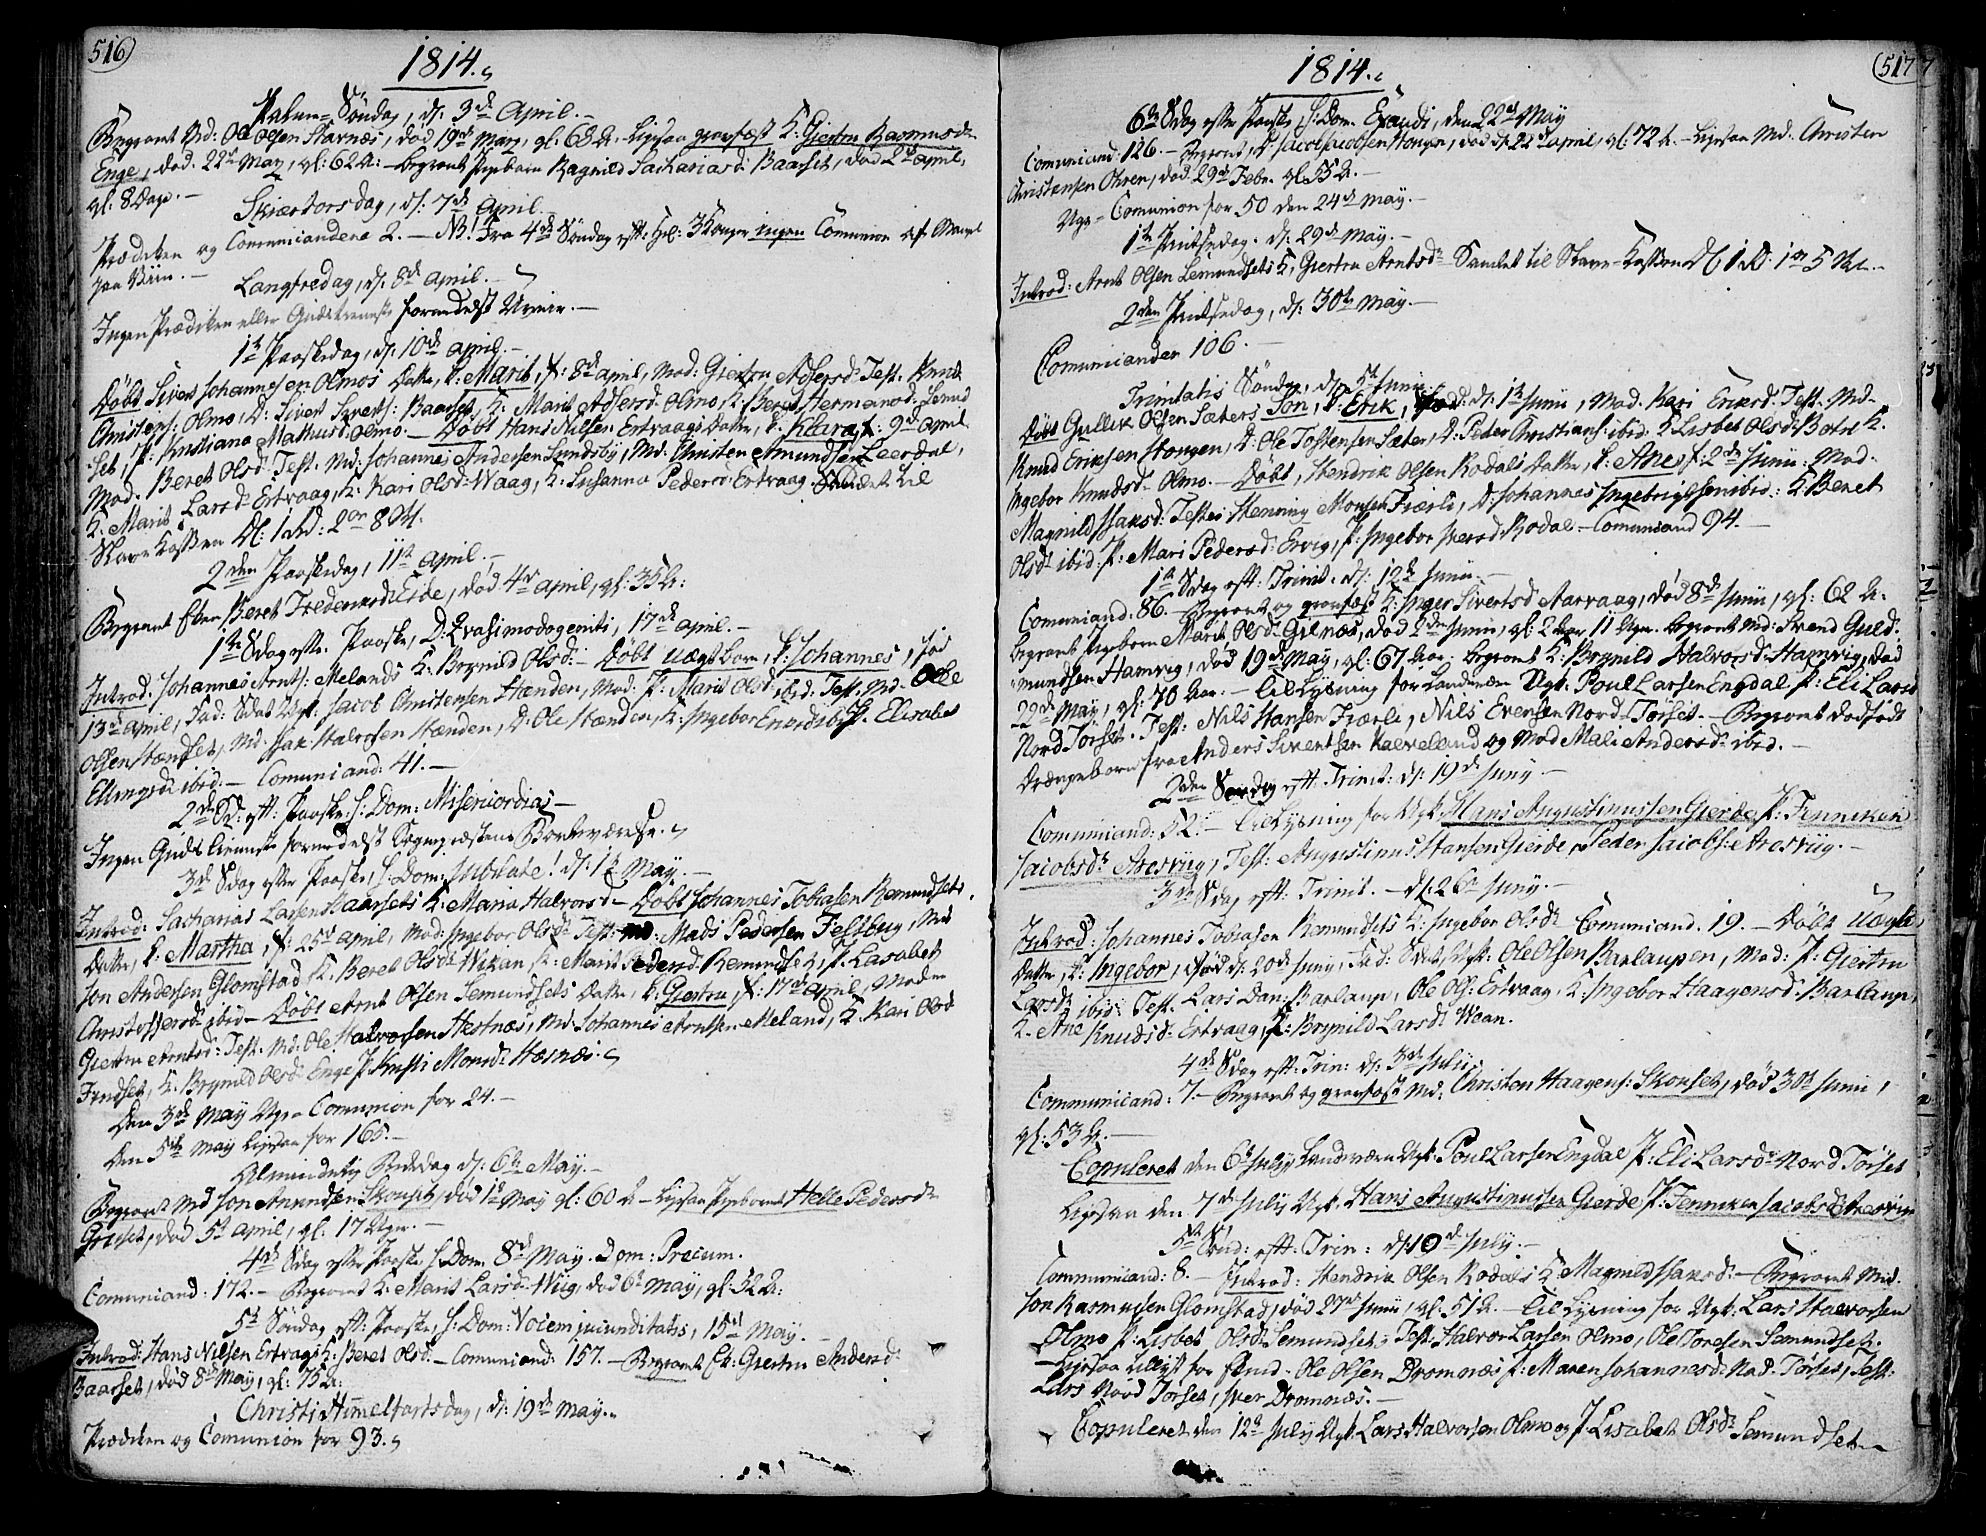 516
1814.
Palm=Søndag, d: 3de April.
Begravet Md: Ole Olsen Starnæs, død 19de May, gl: 68 A. Ligesaa gravfæst K: Giertru Rasmusdr
Enge, død 22de May, gl: 62 A: Begravet Pigebarn Ragnild Sachariasd: Baarset, død 2de April,
gl: 8 Dage. –
Skiærtorsdag, d: 7de April. –
Prædiken og Comunicandere 2. – NB! Fra 4de Søndag eft: Hel: 3 Konger ingen Comunion af Mangel
paa Viin. –
Langfredag, d: 8de April. –
Ingen Prædiken eller Gudstieneste formedelst Uveir. –
1te Paaskedag, d: 10de April. –
Døbt Siver Johannesen Olmos Datter, k: Marit, f: 8de April, Mod: Giertru Adsersd: Test. Knud
Christens: Olmo, D: Sivert Siverts: Baarset, K: Marit Adsersd: Olmo, K: Beret Hermansd: Semund
Set, P: Kristiana Mathiasd: Olmo. – Døbt Hans Nilsen Ertvaags Datter, k: Kiara, f: 9de April
Mod. Beret Olsd: Test. Md: Johannes Andersen Sundsby, Md: Christen Amundsen Leerdal,
K: Marit Larsd: Ertvaag, K: Kari Olsd: Waag, K: Susanna Pedersd: Ertvaag. Samlet til
Slave Kassen Dl: 1 rd: 2 ort 8 sk.
2den Paaskedag, 11te April. –
Begravet Enken Beret Fredericsd: Eide, død 4de April, gl: 35 A:
1te Sdag efter Paaske, D: Qvasimodogeniti, 17de April. –
Introd. Johannes Arnts: Melands K: Brynild Olsd: – Død uægt barn, k: Johannes, fød
13de April, Fad: Sdat Ugk: Jacob Christensen Stænden, Mod: P: Marit Olsd: ibid: Test. Md. Ole
Olsen Stændset, Md: Isak Halvorsen Stænden, D: Ole Stænden, K: Ingebor Ibid P. Elisabet
Ellingsd: ibid: – Comuniand: 41. –
2den Sd: eft: Paaske S: Dom: Misericordias –
Ingen Guds tieneste formedelst Sognepræstens Bortværelse.
3de Sdag efter Paaske, S: Dom: Jubilate! d: 1te May. –
Introd: Sacharias Larsen Baarsets K: Maria Halvorsd – Døbt Johannes Tobiasen Remundsets
Datter, k: Martha, f: 25de April, Mod: Ingebor Olsdr Test: Md: Mads Pedersen Felsbug, Md:
Jon Andersen Glomstad, K. Beret Olsd: Wikan, K: Marit Pedersd: Remundset, P. Lasabet
Christoffersdr ibid – Døbt Arnt Olsen Semundsets Datter, k: Giertru, f: 17de April, Moder
Giertru Arntsd: Test. Md: Ole Halvorsen Hestnæs, Md: Johannes Arntsen Meland, K. Kari Olsd
Fredset, K. Brynild Olsd: Enge P. Kristi Monsd: Hæsnæs.
Den 3de May Ugse Comunion for 24. –
Den 5te May Ligesaa for 165. –
Almindelig Bededag d: 6te May. –
Begravet Md Jon Amundsen Skonset, død 1te May gl: 60 A – Ligesaa Pigebarnet Helle Pedersdr
Griset, død 5t April, gl: 17 Uger. –
4de Sdag efter Paaske S: Dom: 8de May. Dom: Precum.
Comuniand: 172. – Begravet K: Marit Larsd: Wiig, død 6te May, gl: 32 A:
5te Søndag eft: Paaske, S: Dom: Vocem jucunditatis, 15de May. –
Introd: Hans Nilsen Ertvags K: Beret Olsd. – Comuniand: 157. – Begravet Ek: Giertru Andersd:
Baarset, død 8de May, gl: 75 A:
Christi Himmelfartsdag, d: 19de May.
Prædiken og Comunion for 93.
517
1814.
6te Sdag efter Paaske, S: Dom: Exaudi, den 22de May
Comuniand: 126. – Begravet, D: Jacob Jacobsen Stongen, død d: 22de April, gl: 72 A. – Ligesaa Md. Christen
Christensen Ohren, død 29de Febr. gl. 55 A. –
Ugs – Comunion for 50 den 24de May. –
1te Pintsedag. d: 29de May. –
Introd: Arnt Olsen Semundsets K, Giertru Arntsdr Samlet til Slave-Kassen Dl 1 rd: 1 ort 5 sk. –
2den Pintsedag, d: 30te May. –
Comuniander 106. –
Trinitatis Søndag, d: 5te Junii.
Døbt Gullik Olsen Sæters Søn, k: Erik, fød: d: 1te Junii, Mod. Kari Eriksd: Test. Md.
Knud Eriksen Stongen, D: Ole Tostensen Sæter, D: Peder Christians: ibid. K Lisbet Olsd: Botn K.
Ingebor Knudsd: Olmo. – Døbt, Hendrik Olsen Rodals Datter, k: Ane, f: 2de Junii: Mod.
Magnild Isaksd: Testes Henning Monsen Fiærli, D: Johannes Ingebrigtsen ibid: K Beret
Olsdr ibid: P: Mari Pedersd: Ervig, P: Ingebor Iversd Rodal – Comuniand 94. –
1te Sdag eft: Trinit. d: 12te Junii. –
Comuniand: 86. – Begravet og gravfæst K: Inger Sivertsd Aarvaag, død 8de Junii, gl: 62 A.
Begravet Pigebarn Marit Olsd: Gilnæs, død 2den Junii, gl: 2 Aar 11 Ugr. Begravet Md: Svend Guld.
mundsen Hamvig, død 19de May, gl: 67 Aar. Begravet K: Brynild Halvorsd: Hamvig, død
22de May, gl: 70 Aar. – Til Lysning for Landværn Ugk: Poul Larsen Engdal P: Eli Larsd
Nord Torset. Test: Nils Hansen Fiærli, Nils Evensen Nord-Torset. – Begravet dødfødt
Drængebarn fra Anders Sivertsen Kalveland og Mod Mali Andersd: ibid. –
2den Søndag eft: Trinit: d: 19de Juny. –
Comuniand: 52. – Til Lysning for Ugk: Hans Augustinussen Gierde P: Jenneken
Jacobsdr Aresviig, Test: Augustinus Hansen Gierde, Peder Jacobs: Aresviig. –
3de Sdag eft: Trinit. – d: 26te Juny. –
Introd: Johannes Tobiasen Remundsets K: Ingebor Olsdr Comuniand. 19. – Døbt Uægte
Datter, k: Ingebor, fød d: 20de Juny, Fad: Sdat, Ugk: Ole Olsen Barlaupen, Mod: P: Giertru
Larsdr ibid: Test. Lars Dan: Barlaup, Ole Ols: Ertvaag, K: Ingebor Haagensd: Barlaup,
K. Ane Knudsd: Ertvaag, P: Brynild Larsd: Waan.
4de Sdag eft: Trin: d: 3de July.
Communicand: 7. – Begravet og gravfæst Md: Christen Haagens: Skonset, død 30te Junii,
gl: 53 A. –
Copuleret den 6te July Landværn Ugk: Poul Larsen Engdal P: Eli Larsdr Nord Torset
Ligesaa den 7de July Ugk. Hans Augustinussen Gierde P: Jenneken Jacobsdr Aresviig
5te Sønd: eft: Trin: d: 10de July. –
Communiand: 8. – Introd: Hendrik Olsen Rodals K: Magnild Isaksd: – Begravet Md.
Jon Rasmusen Glomstad, død 27de Junii, gl. 51 A. – Til Lysning for Ugk: Lars Halvorsen
Olmo P: Lisbet Olsd: Semundset, Test: Halvor Larsen Olmo, Ole Toresen Semundset.
– Ligesaa tillyst for Enkmd: Ole Olsen Dromnæs P: Maren Johannesd: Nord-Torset, Test:
Lars Nord Torset, Iver Dromnæs. –
Copuleret den 12te July Ugk: Lars Halvorsen Olmo og P. Lisabet Olsdr Semundset –